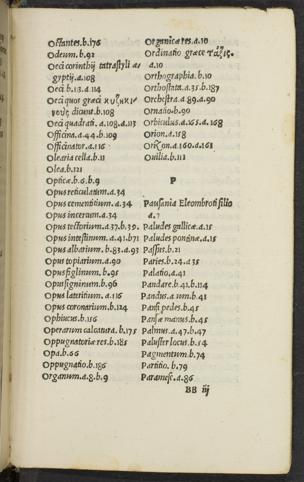 Octantes.b.176
Odeum.b.92
Oeci corinthij tatrastyli ae
gyptij.a.108
Oeci.b.13.a.114
Oeci quos græci κυζηκι‑
νους dicunt.b.108
Oeci quadrati.a.108.a.113
Officina.a.44.b.109
Officinator.a.116
Olearia cella.b.11
Olea.b.121
Optice.b.6.b.9
Opus reticulatum.a.34
Opus cementitium.a.34
Opus incertum.a.34
Opus tectorium.a.37.b.39.
Opus intestinum.a.41.b71
Opus albarium.b.83.a.93
Opus topiarium.a.90
Opus figlinum.b.95
Opus signinum.b.96
Opus lateritium.a.116
Opus coronarium.b.124
Ophiucus.b.156
Operarum calcatura.b.175
Oppugnatoriæ res.b.185
Opa.b.66
Oppugnatio.b.186
Organum.a.8.b.9
Organicæ res.a.10
Ordinatio græce τάξις.
a.10
Orthographia.b.10
Orthostata.a.35.b.187
Orchestra.a 89.a.90
Ornatio.b.90
Orbiculus.a.165.a.168
Orion.a.158
a.160.a.161
Ouilia.b.112
P
Pausania Eleombroti filio
a.7
Paludes gallicæ.a.15
Paludes pontinæ.a.15
Passus.b.21
Paries.b.24.a35
Palatio.a.41
Pandare.b.41.b.114
Pandus.a um.b.41
Pansi pedes.b.45
Pansæ manus.b.45
Palmus.a.47.b.47
Paluster locus.b.54
Pagmentum.b.74
Partitio.b.79
Paramese.a.86
BB iij